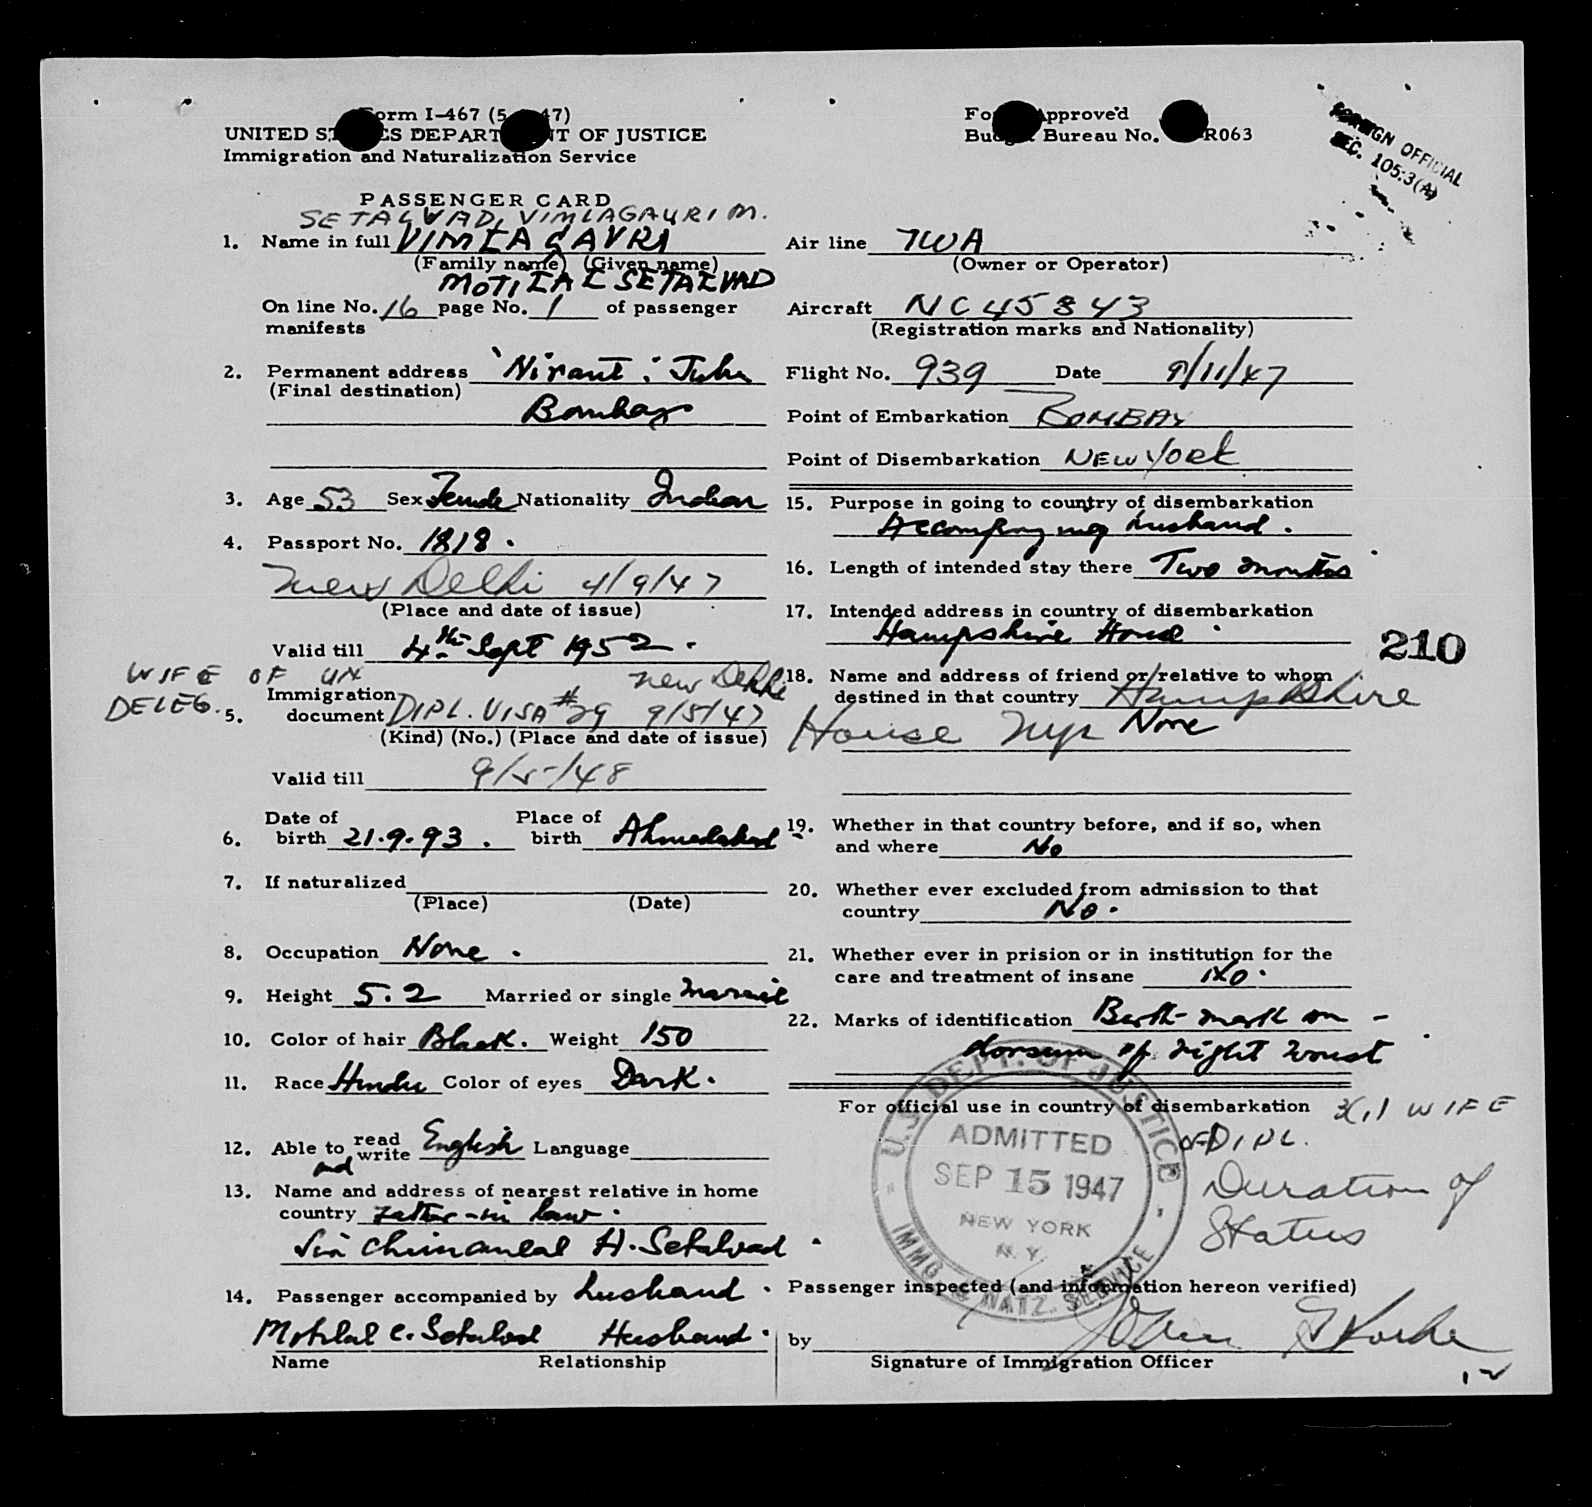 Form I-467 (5 47)
UNITED STATES DEPARTMENT OF JUSTICE
Immigration and Naturalization Service
Form Approved
Budget Bureau No. R063
FOREIGN OFFICIAL
SEC. 105.3(A)
PASSENGER CARD
SETALVAD, VIMLAGAURI M.
1. Name in full VIMLAGAVRI
(Family name) (Given name)
MOTILAL SETALVAD
On line No. 16 page No. 1 of passenger
manifests
2. Permanent address 'Nirant' Juhu
(Final destination)
Bombay
3. Age 53 Sex Female Nationality Indian
4. Passport No. 1818.
New Delhi 4/9/47
(Place and date of issue)
Valid till 4th Sept 1952.
WIFE OF UN
DELEG.
New Delhi
5. Immigration
document DIPL. VISA #29 9/5/47
(Kind) (No.) (Place and date of issue)
Valid till 9/5/48
6. Date of
birth 21.9.93. Place of
birth Ahmedabad
7. If naturalized
(Place) (Date)
8. Occupation None.
9. Height 5.2 Married or single Married
10. Color of hair Black. Weight 150
11. Race Hindu Color of eyes Dark.
12. Able to read
and write English Language
13. Name and address of nearest relative in home
country Father-in law.
Sir Chimanlal H. Setalvad
14. Passenger accompanied by husband.
Motilal C. Setalvad Husband.
Name Relationship
Air line TWA
(Owner or Operator)
Aircraft NC 45843
(Registration marks and Nationality)
Flight No. 939 Date 9/11/47
Point of Embarkation BOMBAY
Point of Disembarkation NEW YORK
15. Purpose in going to country of disembarkation
Accompanying husband.
16. Length of intended stay there Two months
17. Intended address in country of disembarkation
Hampshire House
210
18. Name and address of friend or relative to whom
destined in that country Hampshire
House Nyc None
19. Whether in that country before, and if so, when
and where No
20. Whether ever excluded from admission to that
country No.
21. Whether ever in prision or in institution for the
care and treatment of insane No.
22. Marks of identification Birth-mark on -
dorsum of right wrist
For official use in country of disembarkation 3(1) WIFE
OF DIPL.
Duration of
Status
U.S. DEPT. OF JUSTICE
ADMITTED
SEP 15 1947
NEW YORK
N.Y.
IMMG. & NATZ. SERVICE
Passenger inspected (and information hereon verified)
by John
Signature of Immigration Officer